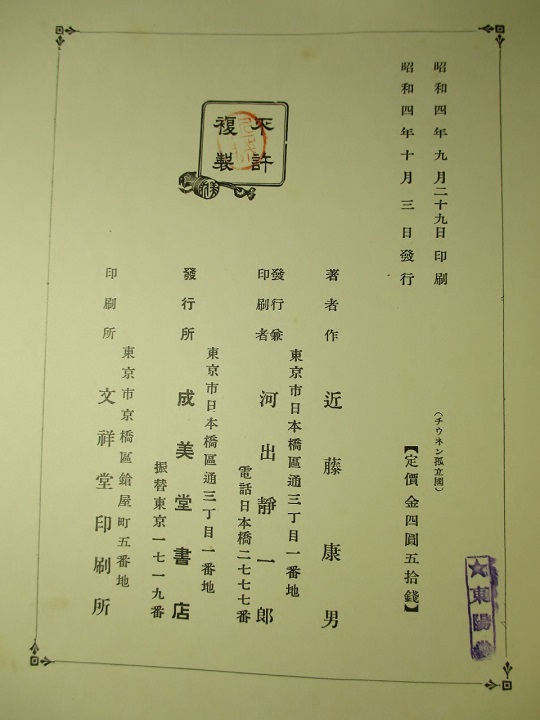 昭和四年九月二十九日印刷
昭和四年十月三日發行
(チウネン孤立國)
【定價金四圓五拾錢】
不許
複製
著作者 近藤康男
東京市日本橋區通三丁目一番地
發行兼
印刷者 河出靜一郎
電話日本橋二七七七番
東京市日本橋區通三丁目一番地
發行所 成美堂書店
振替東京一七一九番
東京市京橋區鎗屋町五番地
印刷所 文祥堂印刷所
東陽